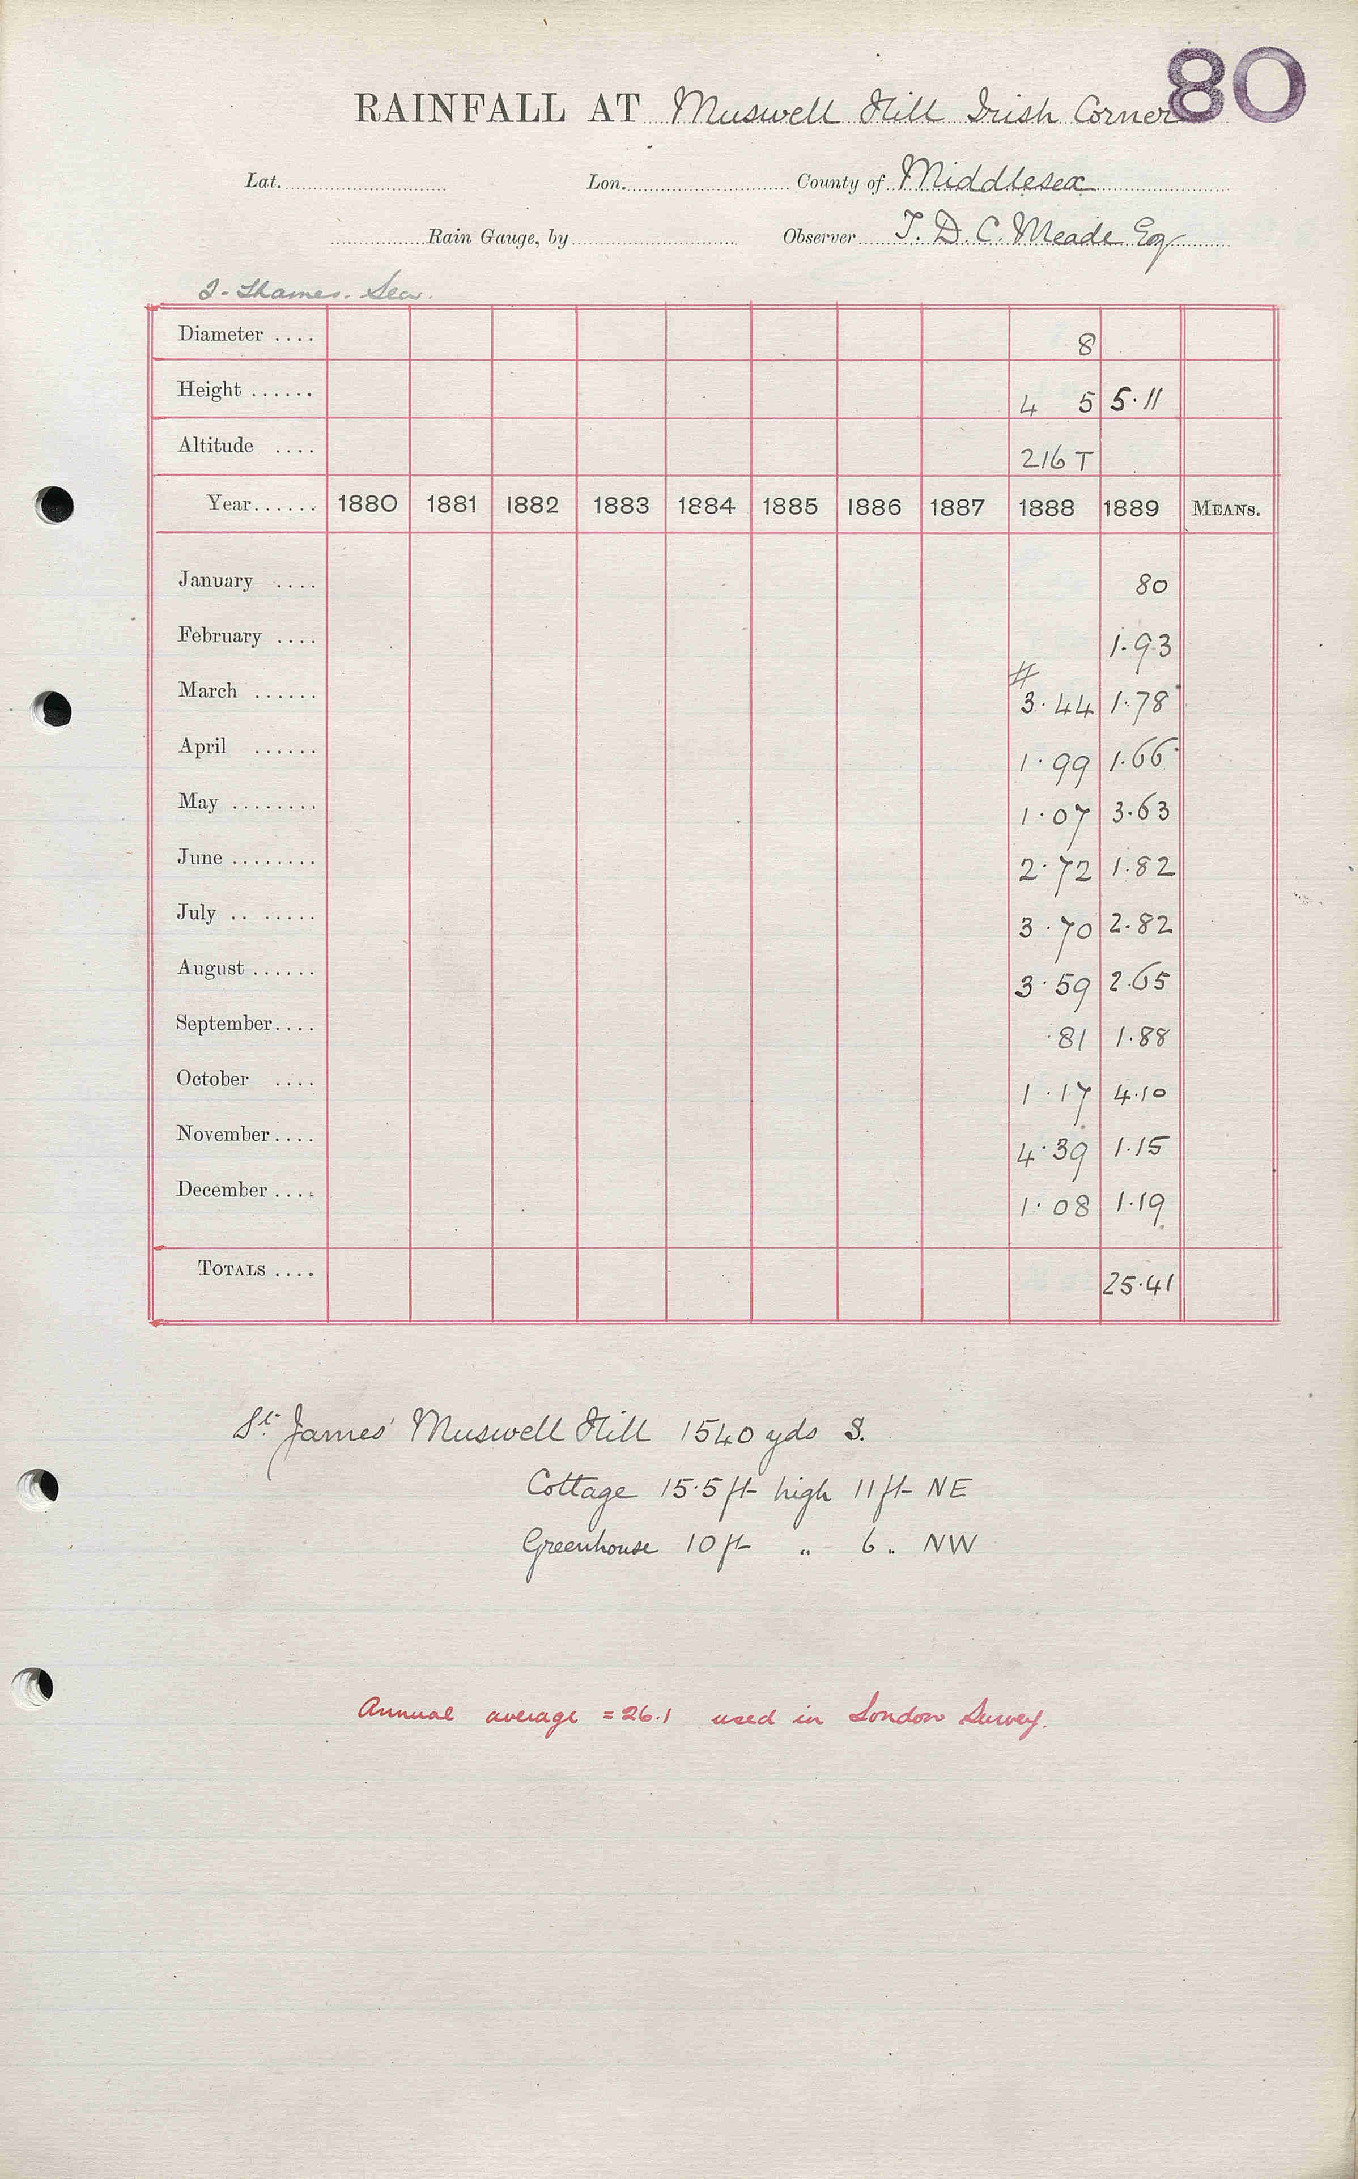 80
RAINFALL AT Muswell Hill Irish Corner
Lat. Lon. County of Middlesex
Rain Gauge, by Observer T. D. C. Meade Esq
2 - Thames - Sea.
Diameter .... 8
Height ...... 4 5 5·11
Altitude .... 216 T
Year...... 1880 1881 1882 1883 1884 1885 1886 1887 1888 1889 MEANS.
January .... 80
February .... 1·93
#
March ...... 3·44 1·78
April ...... 1·99 1·66
May ........ 1·07 3·63
June ........ 2·72 1·82
July .. ..... 3·70 2·82
August ...... 3·59 2·65
September.... ·81 1·88
October .... 1·17 4·10
November.... 4·39 1·15
December .... 1·08 1·19
TOTALS .... 25·41
St. James' Muswell Hill 1540 yds S.
Cottage 15·5 ft high 11 ft NE
Greenhouse 10 ft „ 6 „ NW
Annual average = 26.1 used in London Survey.